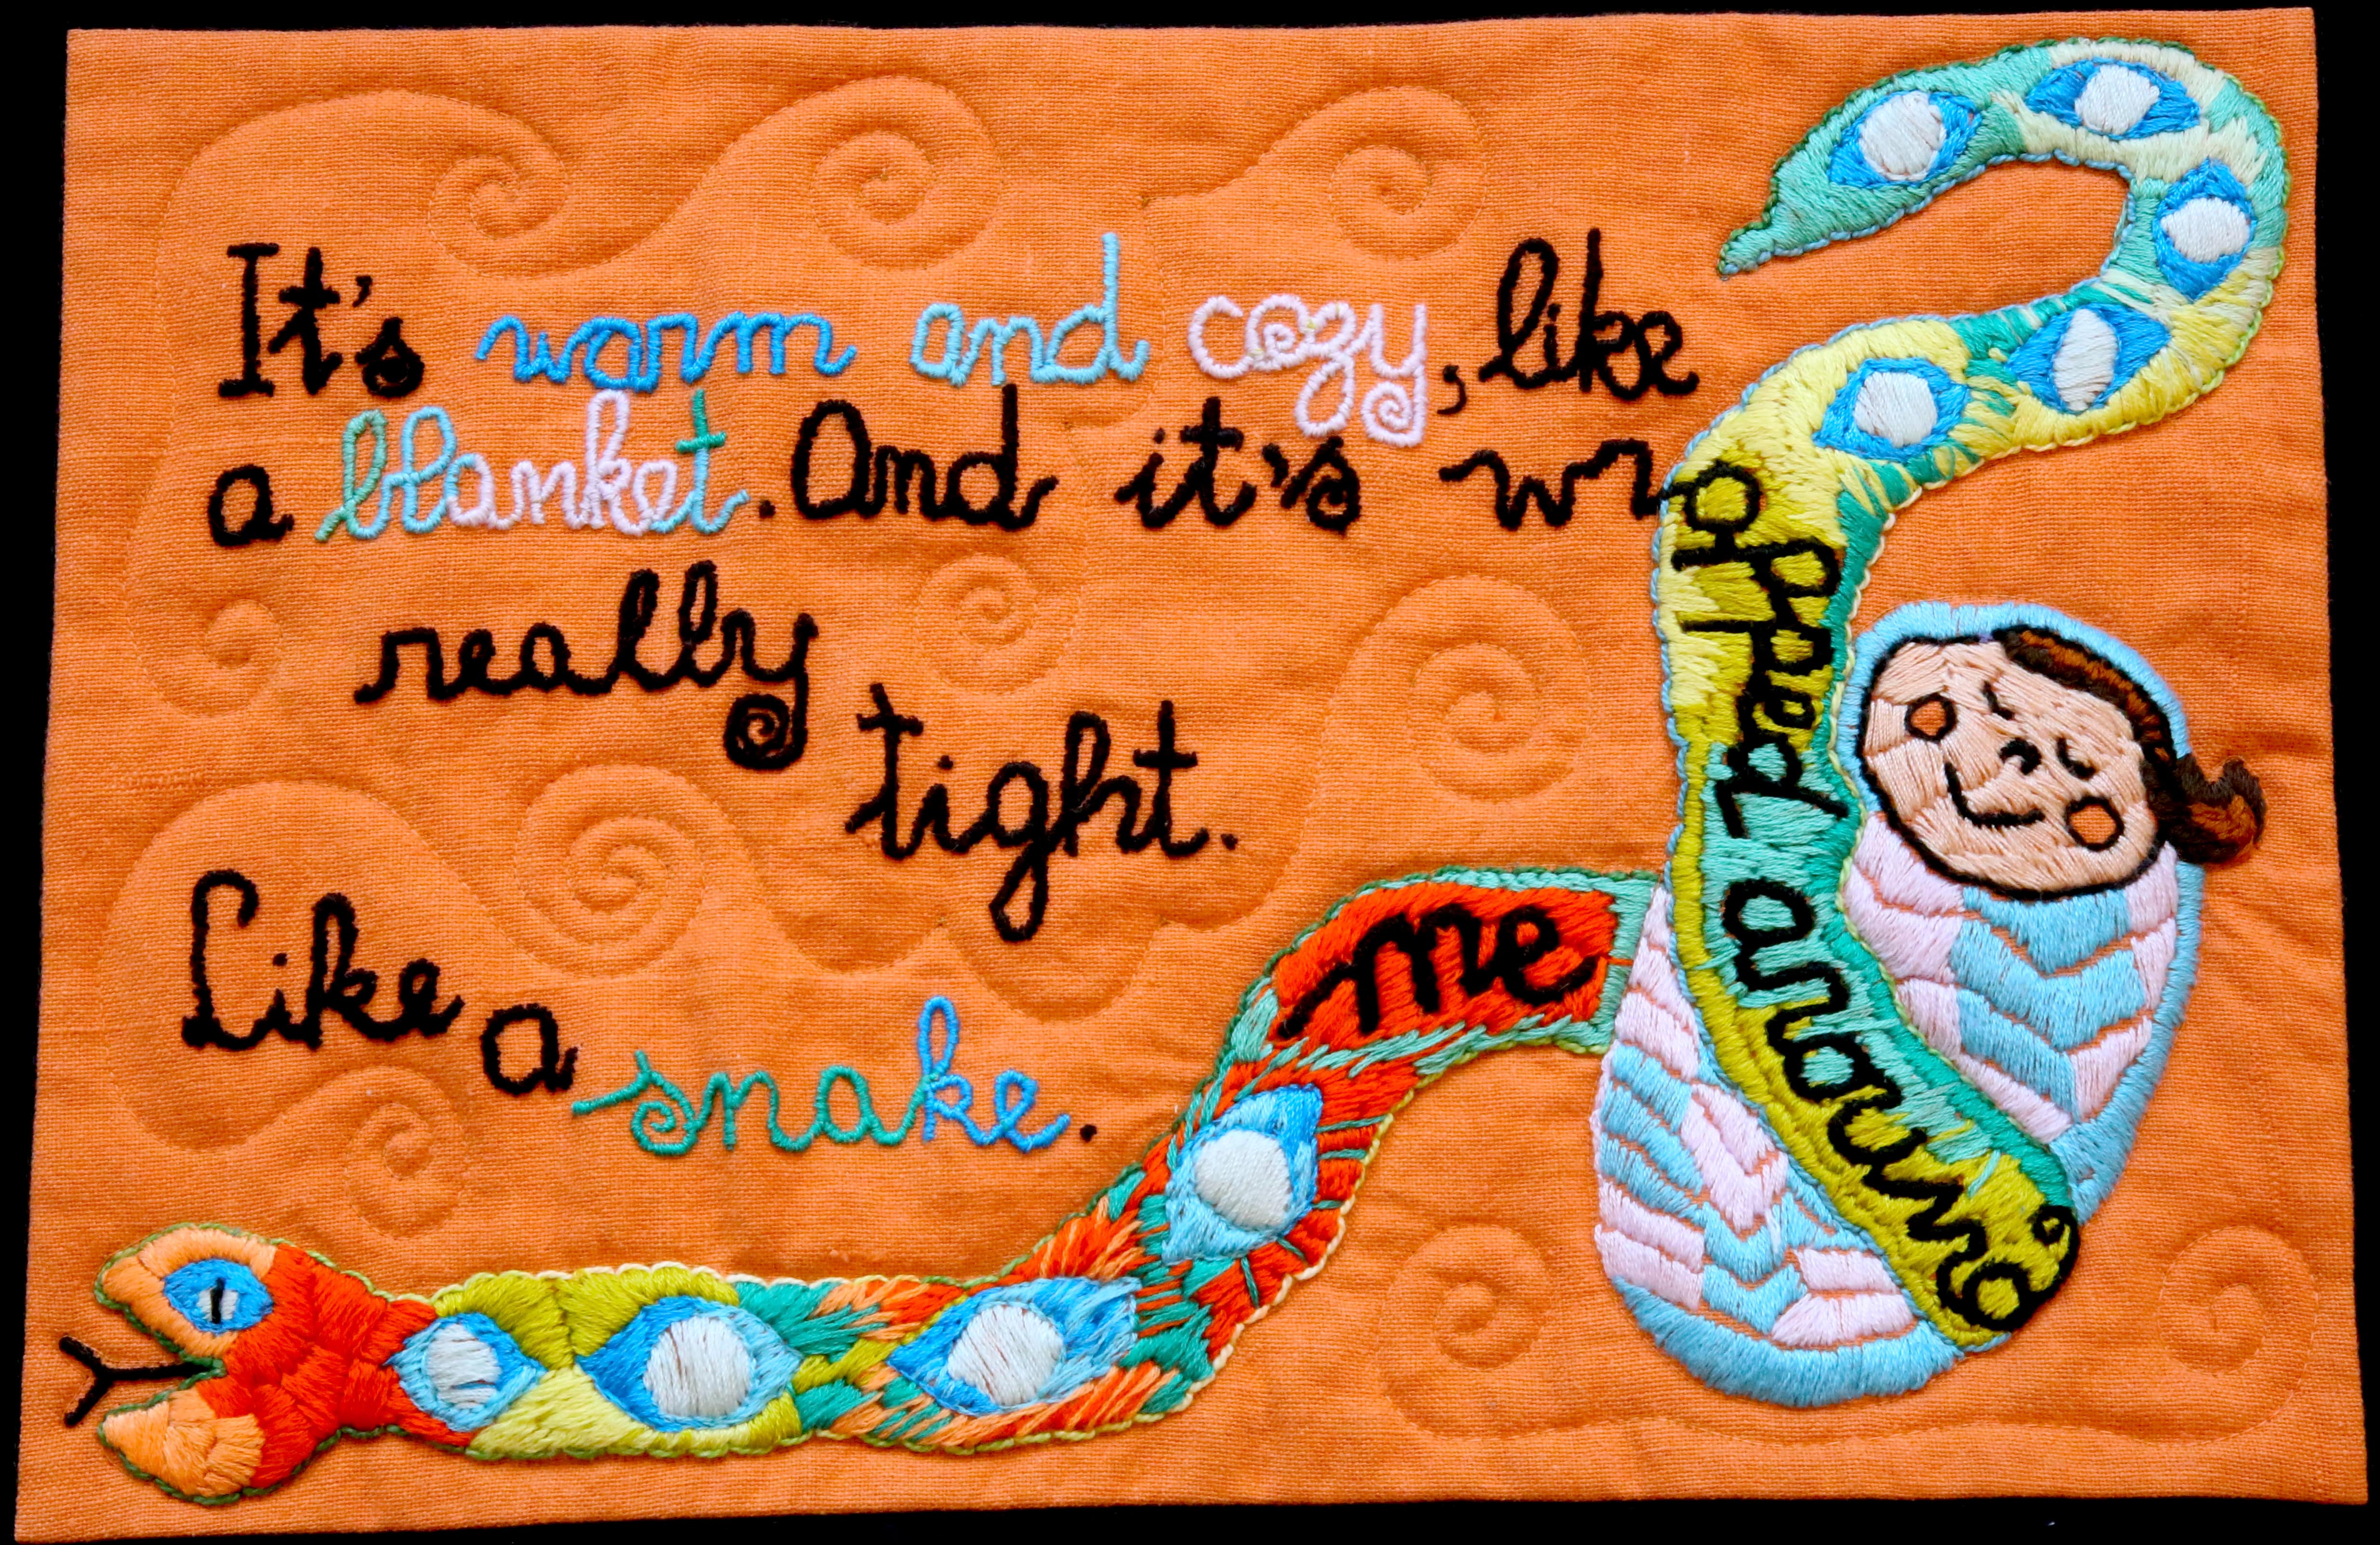 It's warm and cozy, like
a blanket. And it's wrapped around
me
really
tight.
Like a snake.